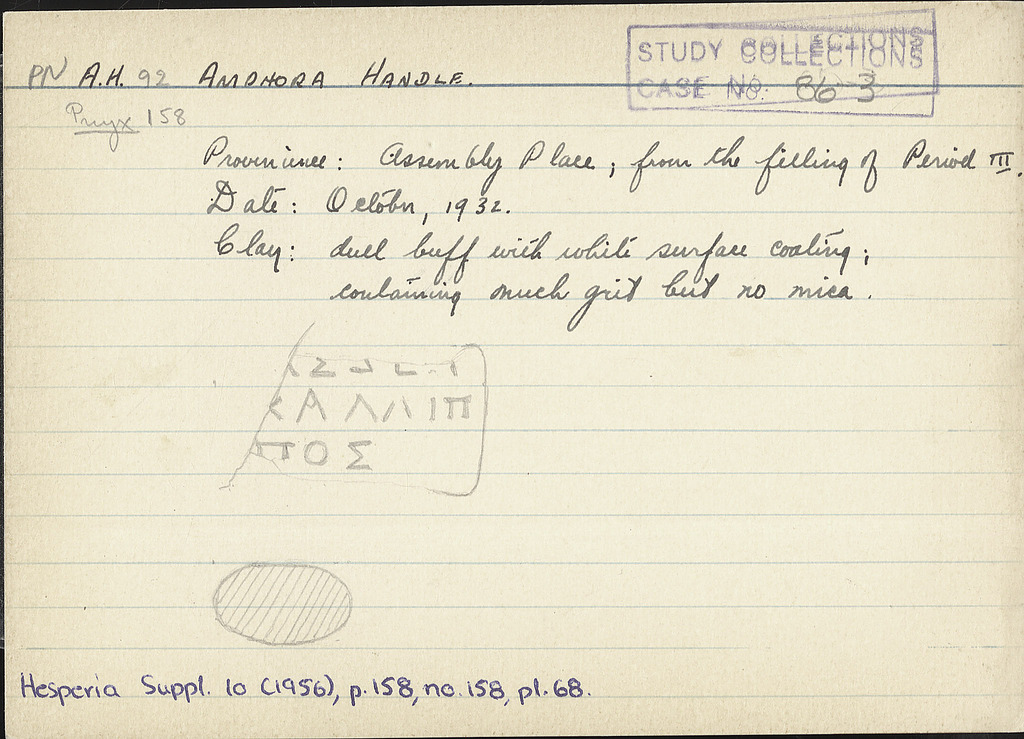 STUDY COLLECTIONS
CASE No. 86-3
PN A.H. 92 AMPHORA HANDLE.
Pnyx 158
Provenience: Assembly Place; from the filling of Period III.
Date: October, 1932.
Clay: duel buff with white surface coating;
containing much grit but no mica.
ΚΑΛΛΙΠ
ΠΟΣ
Hesperia Suppl. 10 (1956), p.158, no.158, pl.68.